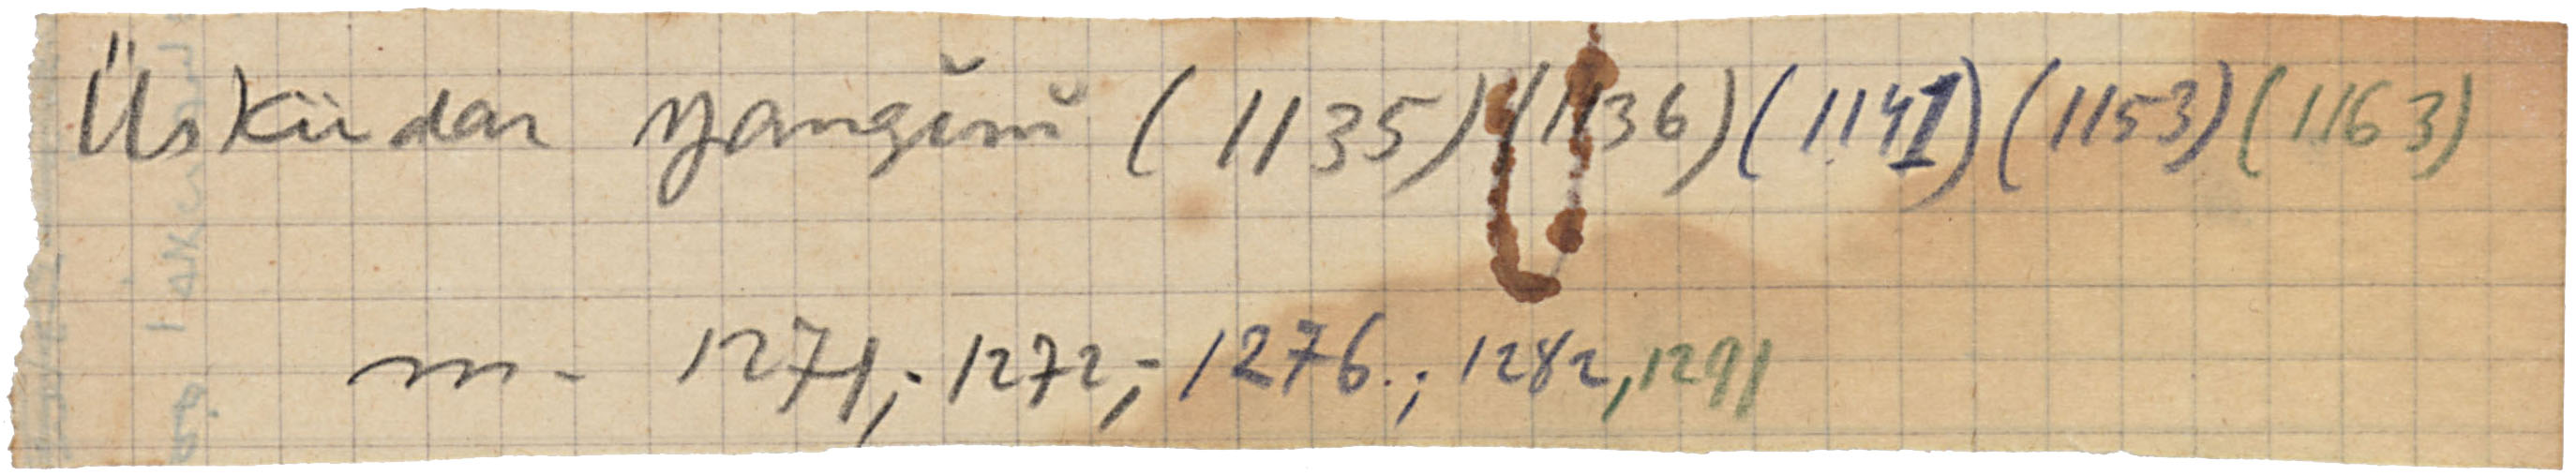 Üsküdar yangĭnĭ (1135) (1136) (1141) (1153) (1163)
m- 1271,- 1272,- 1276.; 1282, 1291